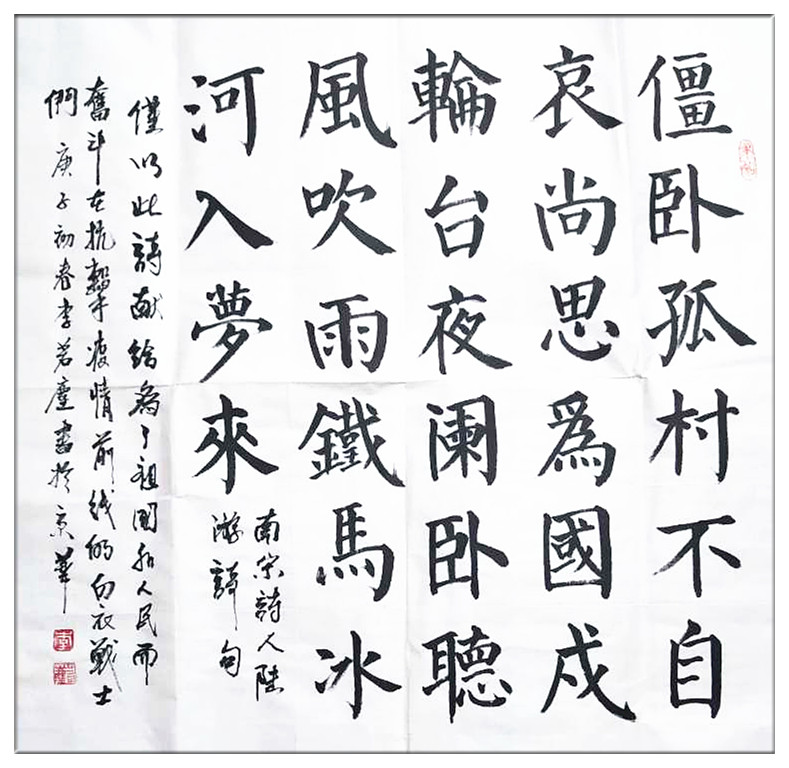 僵卧孤村不自
哀尚思為國戍
輪台夜阑卧聽
風吹雨鐵馬冰
河入夢來
南宋詩人陸
游詩句
僅以此詩献给為了祖國和人民而
奮斗在抗擊疫情前线的白衣戰士
們 庚子初春李若塵書於京華